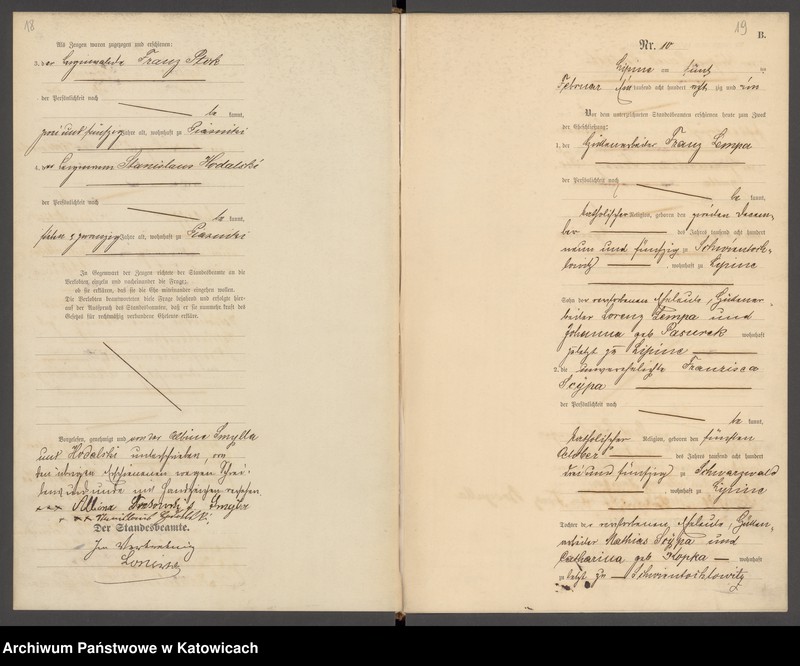 18
Als Zeugen waren zugezogen und erschienen:
3. der Franz Ptok
der Persönlichkeit nach
be kannt,
zwei und fünfzig Jahre alt, wohnhaft zu Piasniki
4. der Bergmann Stanislaus Hodalski
der Persönlichkeit nach
be kannt,
sieben u zwanzig Jahre alt, wohnhaft zu Piasniki
In Gegenwart der Zeugen richtete der Standesbeamte an die
Verlobten einzeln und nacheinander die Frage:
ob sie erklären, daß sie die Ehe miteinander eingehen wollen.
Die Verlobten beantworteten diese Frage bejahend und erfolgte hier-
auf der Ausspruch des Standesbeamten, daß er sie nunmehr kraft des
Gesetzes für rechtmäßig verbundene Eheleute erkläre.
Vorgelesen, genehmigt und von der Albine Smylla
und Hodalski unterschrieben, von
den übrigen Erschienenen wegen Schrei-
bensunkunde mit Handzeichen versehen
+++ Albina Smylla
+++
Der Standesbeamte.
In Vertretung
19
B.
Nr. 10
Lipine am fünf ten
Februar Ein tausend acht hundert acht zig und ein
Vor dem unterzeichneten Standesbeamten erschienen heute zum Zweck
der Eheschließung:
1. der Hüttenarbeiter Franz Lempa
der Persönlichkeit nach
be kannt,
katholischer Religion, geboren den zweiten Decem-
ber des Jahres tausend acht hundert
neun und fünfzig zu Schwientoch-
lowitz, wohnhaft zu Lipine
Sohn der verstorbenen Eheleute, Hüttenar-
beiter Lorenz Lempa und
Johanna geb Pasurek wohnhaft
zuletzt zu Lipine
2. die unverehelichte Franzisca
Scypa
der Persönlichkeit nach
be kannt,
katholischer Religion, geboren den fünften
October des Jahres tausend acht hundert
drei und fünfzig zu Schwarzwald
, wohnhaft zu Lipine
Tochter der verstorbenen Eheleute, Hütten-
arbeiter Mathias Scypa und
Catharina geb. Klopka wohnhaft
zuletzt zu Schwientochlowitz
Archiwum Państwowe w Katowicach